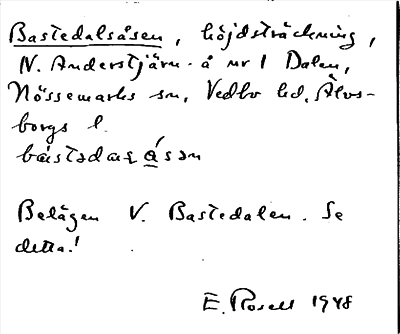 Bastedalsåsen, höjdsträckning,
N. Anderstjärn å nr 1 Dalen,
Nössemarks sn, Vedbo hd, Älvs-
borgs l.
Belägen V. Bastedalen. Se
detta!
E. Rosell 1948